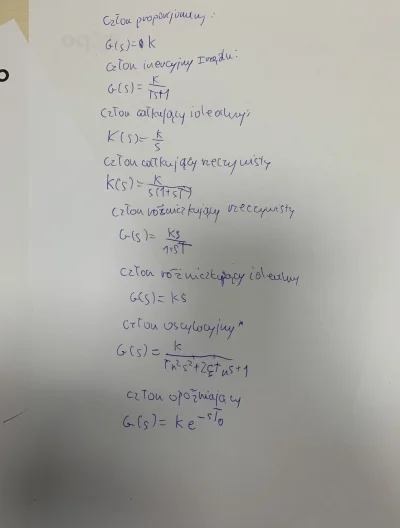 Człon proporcjonalny:
G(s)= k
Człon inercyjny I rzędu:
G(s)= k / Ts+1
Człon całkujący idealny:
K(s)= k / s
Człon całkujący rzeczywisty
K(s)= k / s(1+sT)
Człon różniczkujący rzeczywisty
G(s)= ks / 1+sT
Człon różniczkujący idealny
G(s)= ks
Człon oscylacyjny*
G(s)= k / Tn²s²+2ξTns+1
Człon opóźniający
G(s)= k e^-sT₀